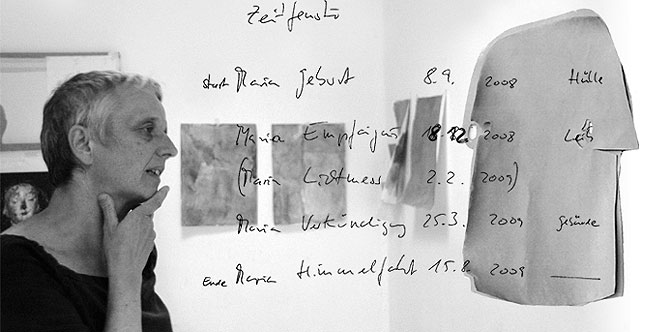 Zeitfenster
start Maria Geburt 8.9. 2008 Hülle
Maria Empfängnis 8.12. 2008 Leib
(Maria Lichtmess 2.2. 2009)
Maria Verkündigung 25.3. 2009 gebunde
Ende Maria Himmelfahrt 15.8. 2009